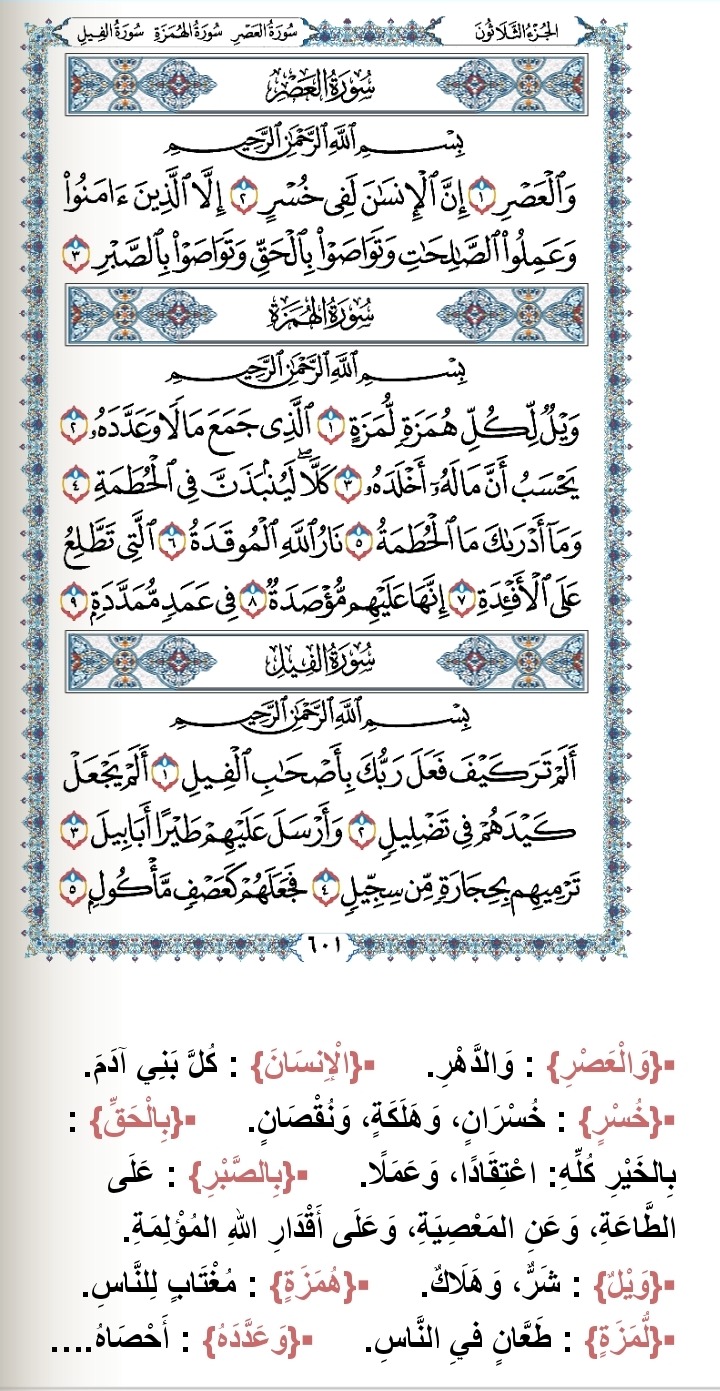 الجُزْءُ الثَّلَاثُونَ سُورَةُ العَصْرِ سُورَةُ الهُمَزَةِ سُورَةُ الفِيلِ
سُورَةُ العَصْرِ
بِسْمِ ٱللَّهِ ٱلرَّحْمَٰنِ ٱلرَّحِيمِ
وَٱلْعَصْرِ ١ إِنَّ ٱلْإِنسَٰنَ لَفِى خُسْرٍ ٢ إِلَّا ٱلَّذِينَ ءَامَنُوا۟
وَعَمِلُوا۟ ٱلصَّٰلِحَٰتِ وَتَوَاصَوْا۟ بِٱلْحَقِّ وَتَوَاصَوْا۟ بِٱلصَّبْرِ ٣
سُورَةُ الهُمَزَةِ
بِسْمِ ٱللَّهِ ٱلرَّحْمَٰنِ ٱلرَّحِيمِ
وَيْلٌ لِّكُلِّ هُمَزَةٍ لُّمَزَةٍ ١ ٱلَّذِى جَمَعَ مَالًا وَعَدَّدَهُۥ ٢
يَحْسَبُ أَنَّ مَالَهُۥٓ أَخْلَدَهُۥ ٣ كَلَّا ۖ لَيُنۢبَذَنَّ فِى ٱلْحُطَمَةِ ٤
وَمَآ أَدْرَىٰكَ مَا ٱلْحُطَمَةُ ٥ نَارُ ٱللَّهِ ٱلْمُوقَدَةُ ٦ ٱلَّتِى تَطَّلِعُ
عَلَى ٱلْأَفْـِٔدَةِ ٧ إِنَّهَا عَلَيْهِم مُّؤْصَدَةٌ ٨ فِى عَمَدٍ مُّمَدَّدَةٍۭ ٩
سُورَةُ الفِيلِ
بِسْمِ ٱللَّهِ ٱلرَّحْمَٰنِ ٱلرَّحِيمِ
أَلَمْ تَرَ كَيْفَ فَعَلَ رَبُّكَ بِأَصْحَٰبِ ٱلْفِيلِ ١ أَلَمْ يَجْعَلْ
كَيْدَهُمْ فِى تَضْلِيلٍ ٢ وَأَرْسَلَ عَلَيْهِمْ طَيْرًا أَبَابِيلَ ٣
تَرْمِيهِم بِحِجَارَةٍ مِّن سِجِّيلٍ ٤ فَجَعَلَهُمْ كَعَصْفٍ مَّأْكُولٍۭ ٥
٦٠١
▪{وَالْعَصْرِ} : وَالدَّهْرِ. ▪{الْإِنسَانَ} : كُلَّ بَنِي آدَمَ.
▪{خُسْرٍ} : خُسْرَانٍ، وَهَلَكَةٍ، وَنُقْصَانٍ. ▪{بِالْحَقِّ} :
بِالخَيْرِ كُلِّهِ: اعْتِقَادًا، وَعَمَلًا. ▪{بِالصَّبْرِ} : عَلَى
الطَّاعَةِ، وَعَنِ المَعْصِيَةِ، وَعَلَى أَقْدَارِ اللهِ المُؤْلِمَةِ.
▪{وَيْلٌ} : شَرٌّ، وَهَلَاكٌ. ▪{هُمَزَةٍ} : مُغْتَابٍ لِلنَّاسِ.
▪{لُّمَزَةٍ} : طَعَّانٍ فِي النَّاسِ. ▪{وَعَدَّدَهُ} : أَحْصَاهُ....